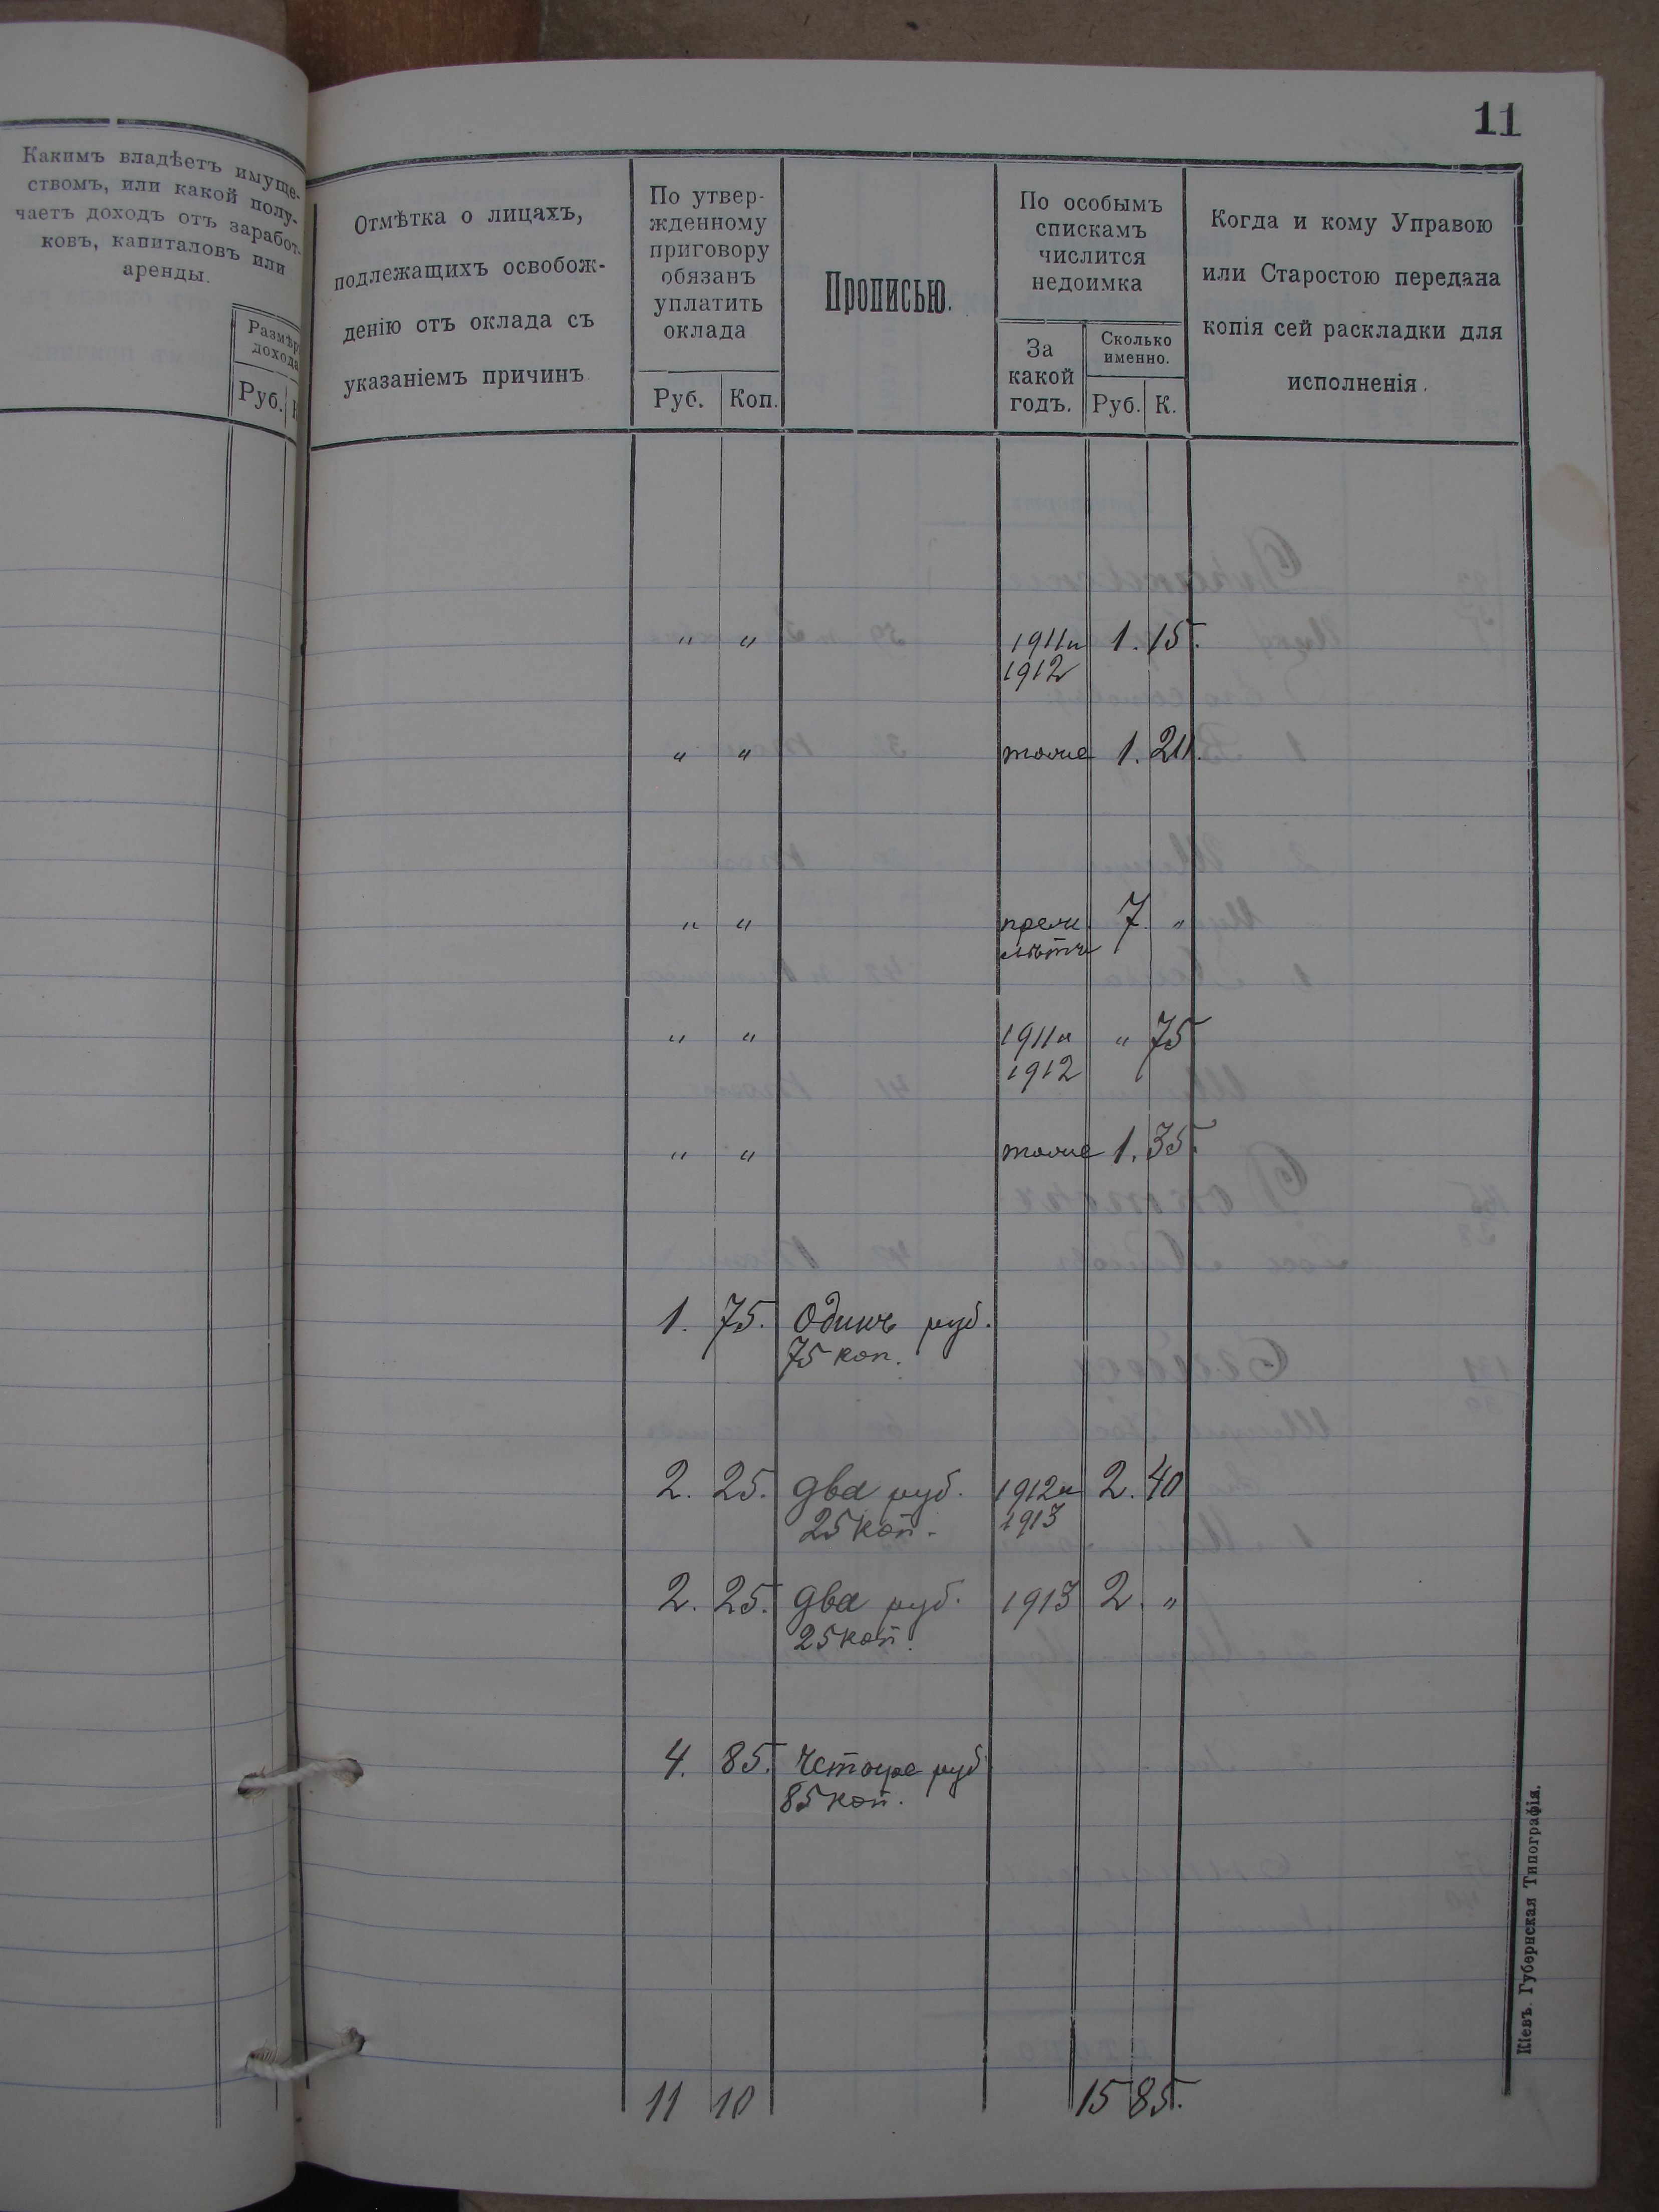 Какимъ владѣетъ имуще-
ствомъ, или какой полу-
чаетъ доходъ отъ заработ-
ковъ, капиталовъ или
аренды.
Размѣръ
дохода
Руб.
11
Отмѣтка о лицахъ,
подлежащихъ освобож-
денію отъ оклада съ
указаніемъ причинъ
По утвер-
жденному
приговору
обязанъ
уплатить
оклада
Руб. Коп.
Прописью.
По особымъ
спискамъ
числится
недоимка
За
какой
годъ.
Сколько
именно.
Руб. К.
Когда и кому Управою
или Старостою передана
копія сей раскладки для
исполненія.
" " 1911 и 1. 15.
1912
" " тоже 1. 20.
" " 7. "
" " 1911 и " 75
1912
" " тоже 1. 35.
1. 75. Одинъ руб.
75 коп.
2. 25. два руб. 1912 и 2. 40
25 коп. 1913
2. 25. два руб. 1913 2. "
25 коп.
4. 85. Четыре руб
85 коп.
11 10 15 85.
Кіевъ. Губернская Типографія.